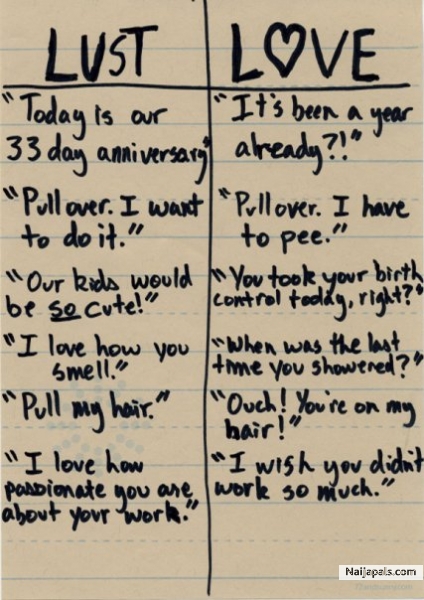 LUST
"Today is our
33 day anniversary"
"Pull over. I want
to do it."
"Our kids would
be so cute!"
"I love how you
smell."
"Pull my hair."
"I love how
passionate you are
about your work."
L♡VE
"It's been a year
already?!"
"Pull over. I have
to pee."
"You took your birth
control today, right?"
"When was the last
time you showered?"
"Ouch! You're on my
hair!"
"I wish you didn't
work so much."
Naijapals.com